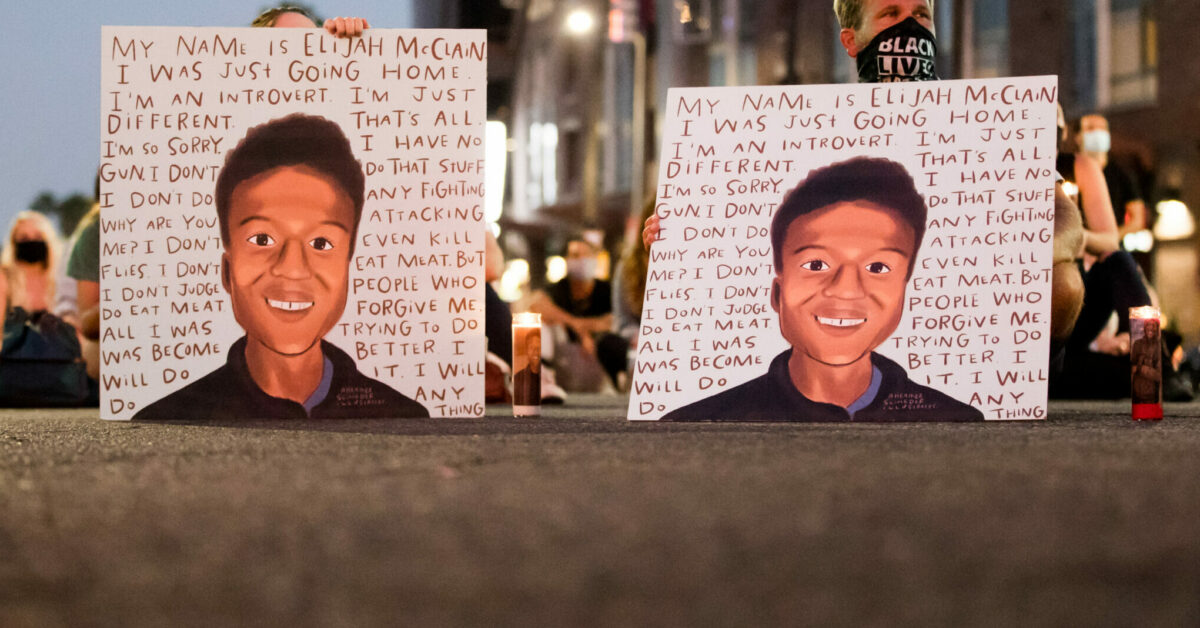 MY NAME IS ELIJAH McCLAIN.
I WAS JUST GOING HOME.
I'M AN INTROVERT. I'M JUST
DIFFERENT. THAT'S ALL.
I'M SO SORRY. I HAVE NO
GUN. I DON'T DO THAT STUFF.
I DON'T DO ANY FIGHTING
WHY ARE YOU ATTACKING
ME? I DON'T EVEN KILL
FLIES. I DON'T EAT MEAT. BUT
I DON'T JUDGE PEOPLE WHO
DO EAT MEAT. FORGIVE ME.
ALL I WAS TRYING TO DO
WAS BECOME BETTER I
WILL DO IT. I WILL
DO ANY
THING
BLACK
LIVES
MY NAME IS ELIJAH McCLAIN
I WAS JUST GOING HOME.
I'M AN INTROVERT. I'M JUST
DIFFERENT. THAT'S ALL.
I'M SO SORRY. I HAVE NO
GUN. I DON'T DO THAT STUFF
I DON'T DO ANY FIGHTING
WHY ARE YOU ATTACKING
ME? I DON'T EVEN KILL
FLIES. I DON'T EAT MEAT. BUT
I DON'T JUDGE PEOPLE WHO
DO EAT MEAT. FORGIVE ME.
ALL I WAS TRYING TO DO
WAS BECOME BETTER I
WILL DO IT. I WILL
DO ANY
THING